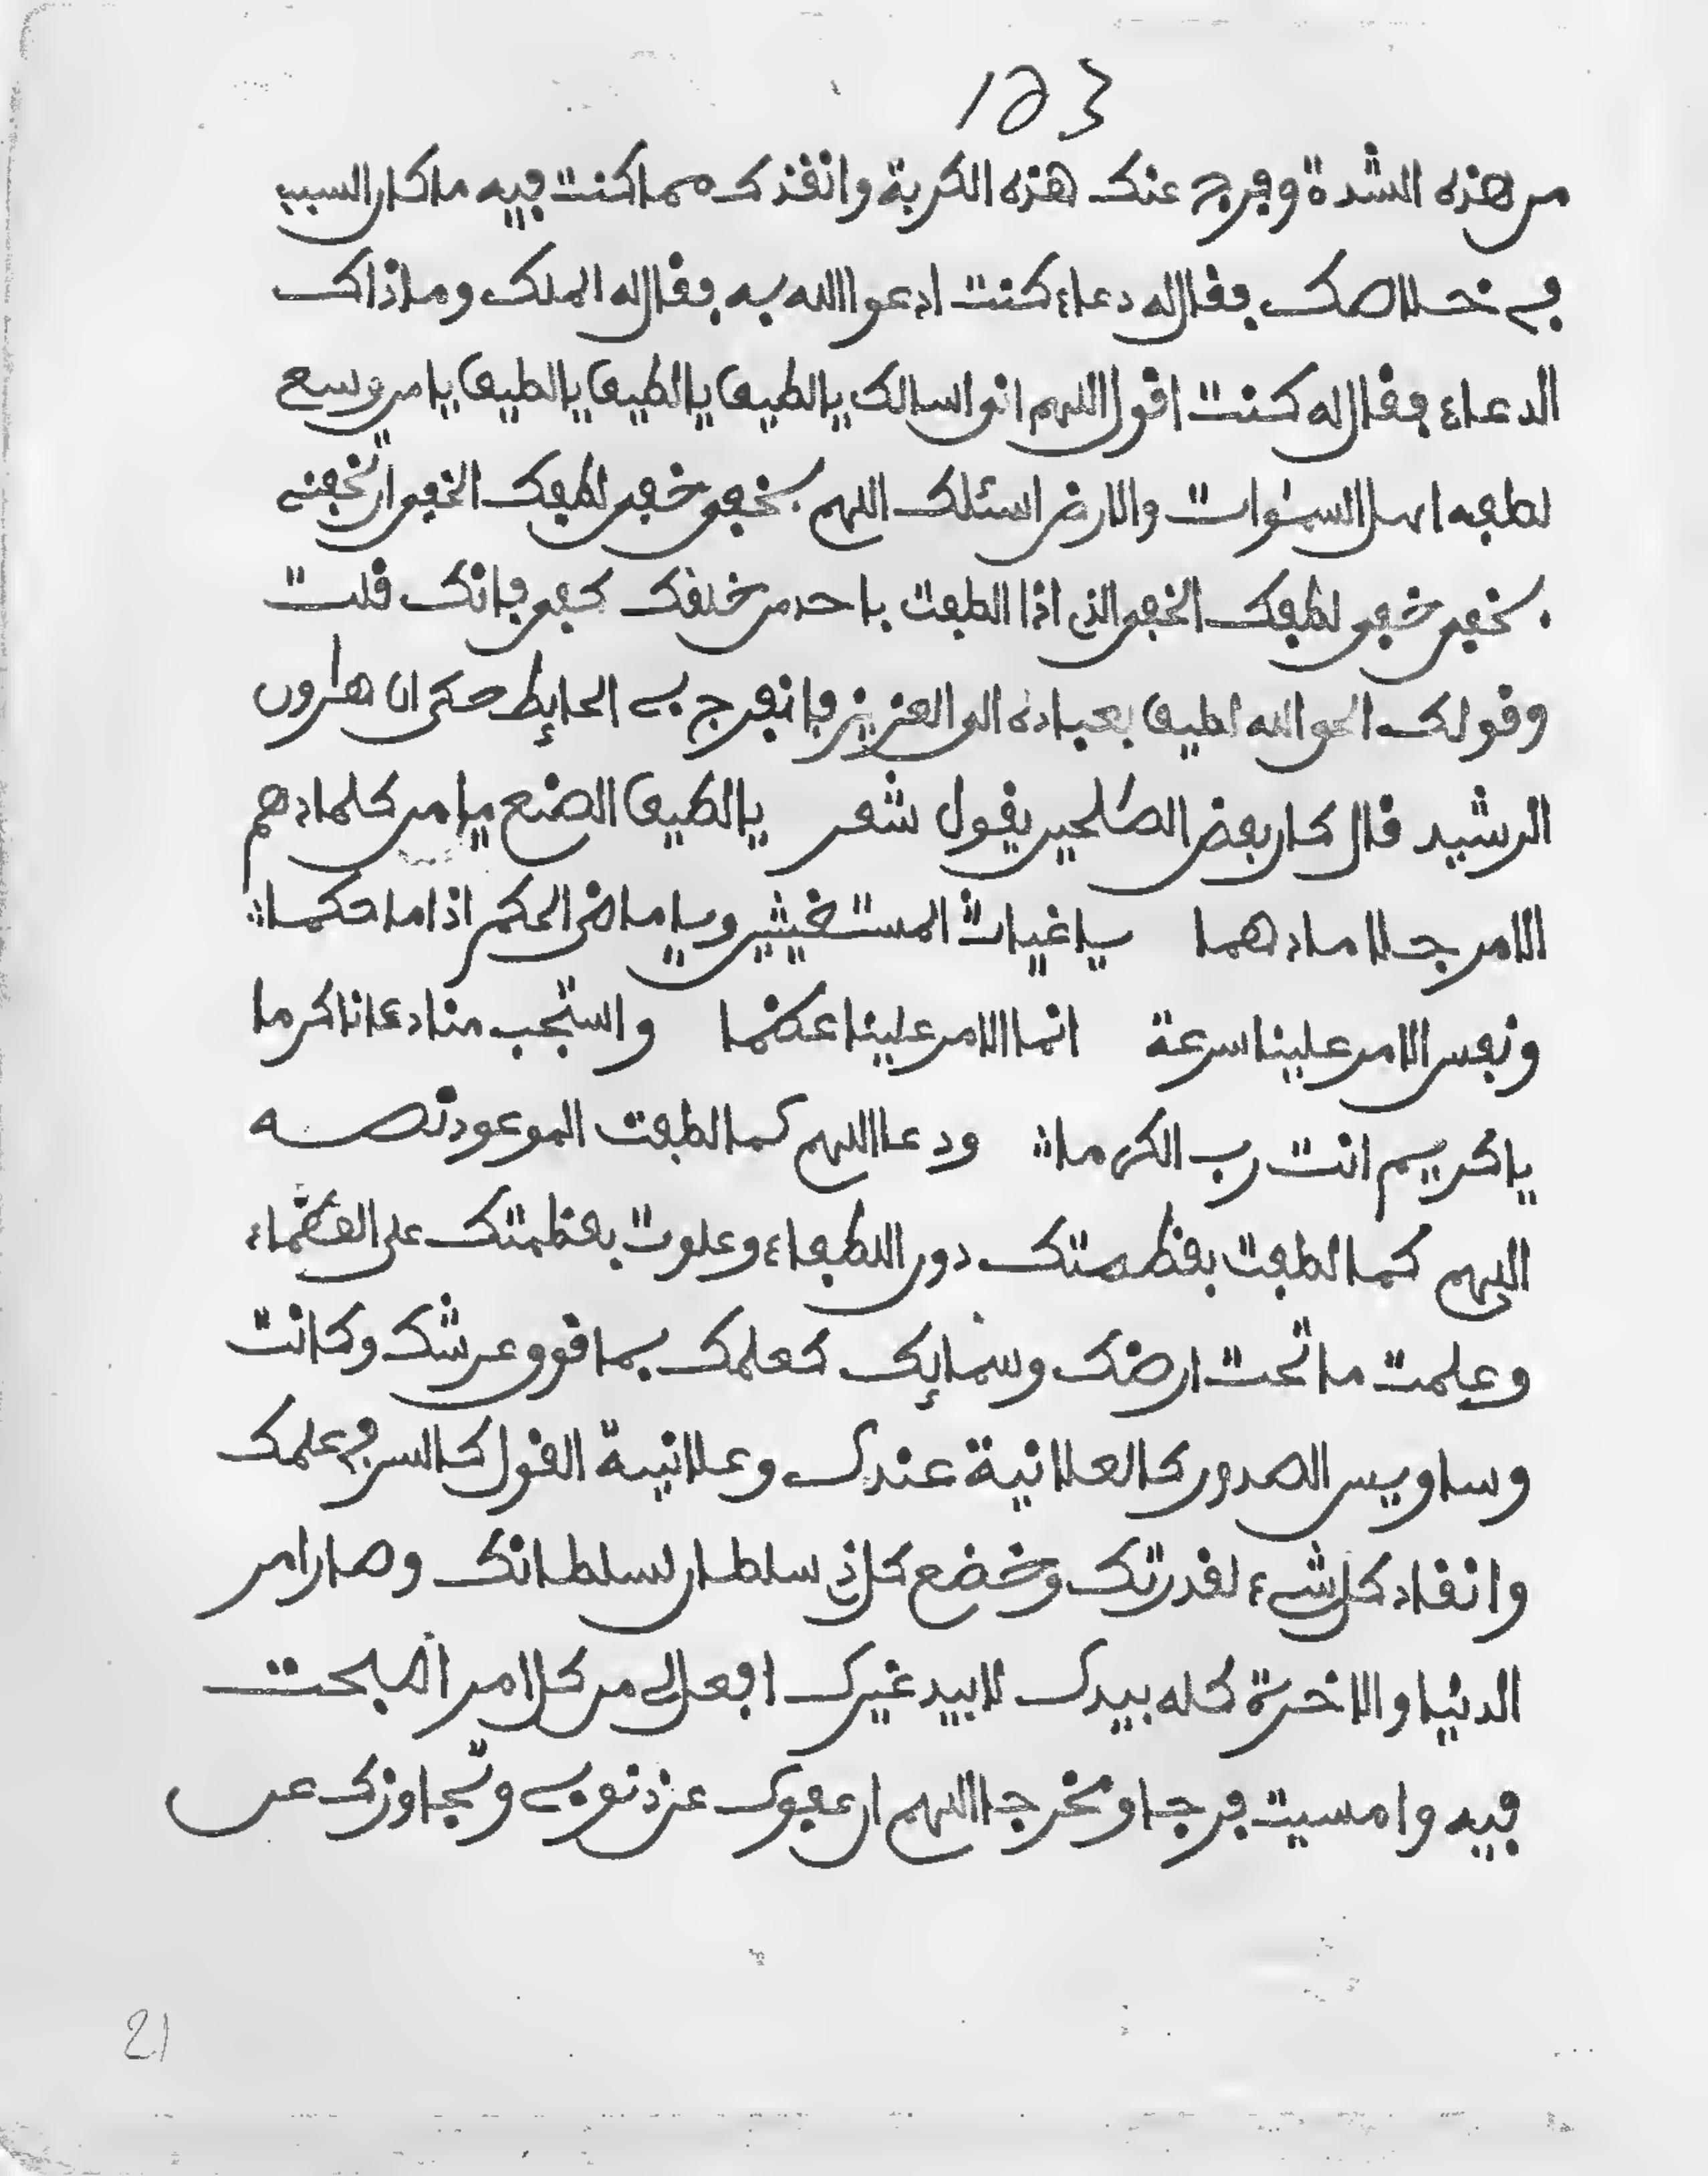 153
من هذه الشدة وفرج عنك هذه الكربة وانقذك مما كنت فيه ما كان السبب
في خلاصك فقال له دعاء كنت ادعوا الله به فقال له الملك وما ذاك
الدعاء فقال له كنت اقول اللهم اني اسالك يا لطيف يا لطيف يا لطيف يا من وسع
لطفه اهل السموات والارض اسئلك اللهم بخفي خفي لطفك الخفي ان تخفني
بخفي خفي لطفك الخفي الذي اذا الطفت باحد من خلفك كفي فانك قلت
وقولك الحق الله لطيف بعباده الى العزيز فانفرج بي الحايط حكى ان هارون
الرشيد قال كان بعض الصلحين يقول شعر يا لطيف الصنع يا من كلما دهم
الامر جلا ما دهما يا غياث المستغيثين ويا ماضى الحكم اذا ما حكما
ونفس الامر علينا سرعة انما الامر علينا عظما واستجب منا دعانا كرما
يا كريم انت رب الكرما ودعا اللهم كما لطفت الموعود نصه
اللهم كما لطفت بعظمتك دون اللطفاء وعلوت بعظمتك على العظماء
وعلمت ما تحت ارضك وسمايك كعلمك بما فوق عرشك وكانت
وساويس الصدور كالعلانية عندك وعلانية القول كالسر في علمك
وانقاد كل شيء لقدرتك وخضع كل ذي سلطان لسلطانك وصار امر
الدنيا والاخرة كله بيدك لا بيد غيرك افعل لي من كل امر اصبحت
فيه وامسيت فرجا ومخرجا اللهم ان عفوك عن ذنوبي وتجاوزك عن
21